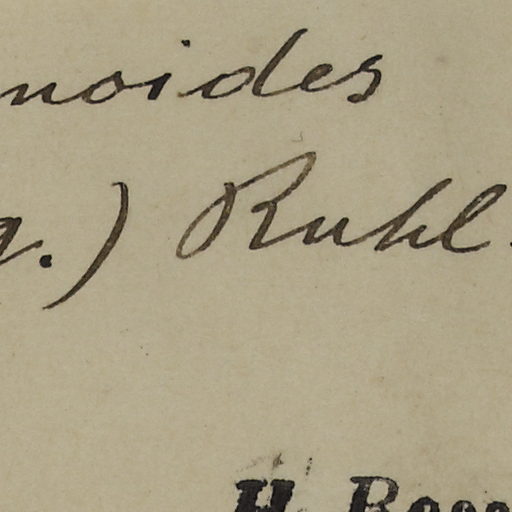 noides
g.) Ruhl.
H. Ross